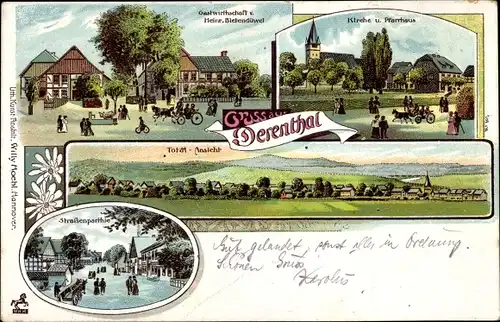 Gastwirthschaft v.
Heinr. Bielendüwel
Kirche u. Pfarrhaus
Gruss aus
Derenthal
Total-Ansicht
Straßenparthie
Lith. Kunst-Anstalt v. Willy Hoehl, Hannover.
Gut gelandet, sonst alles in Ordnung
Schönen Gruss